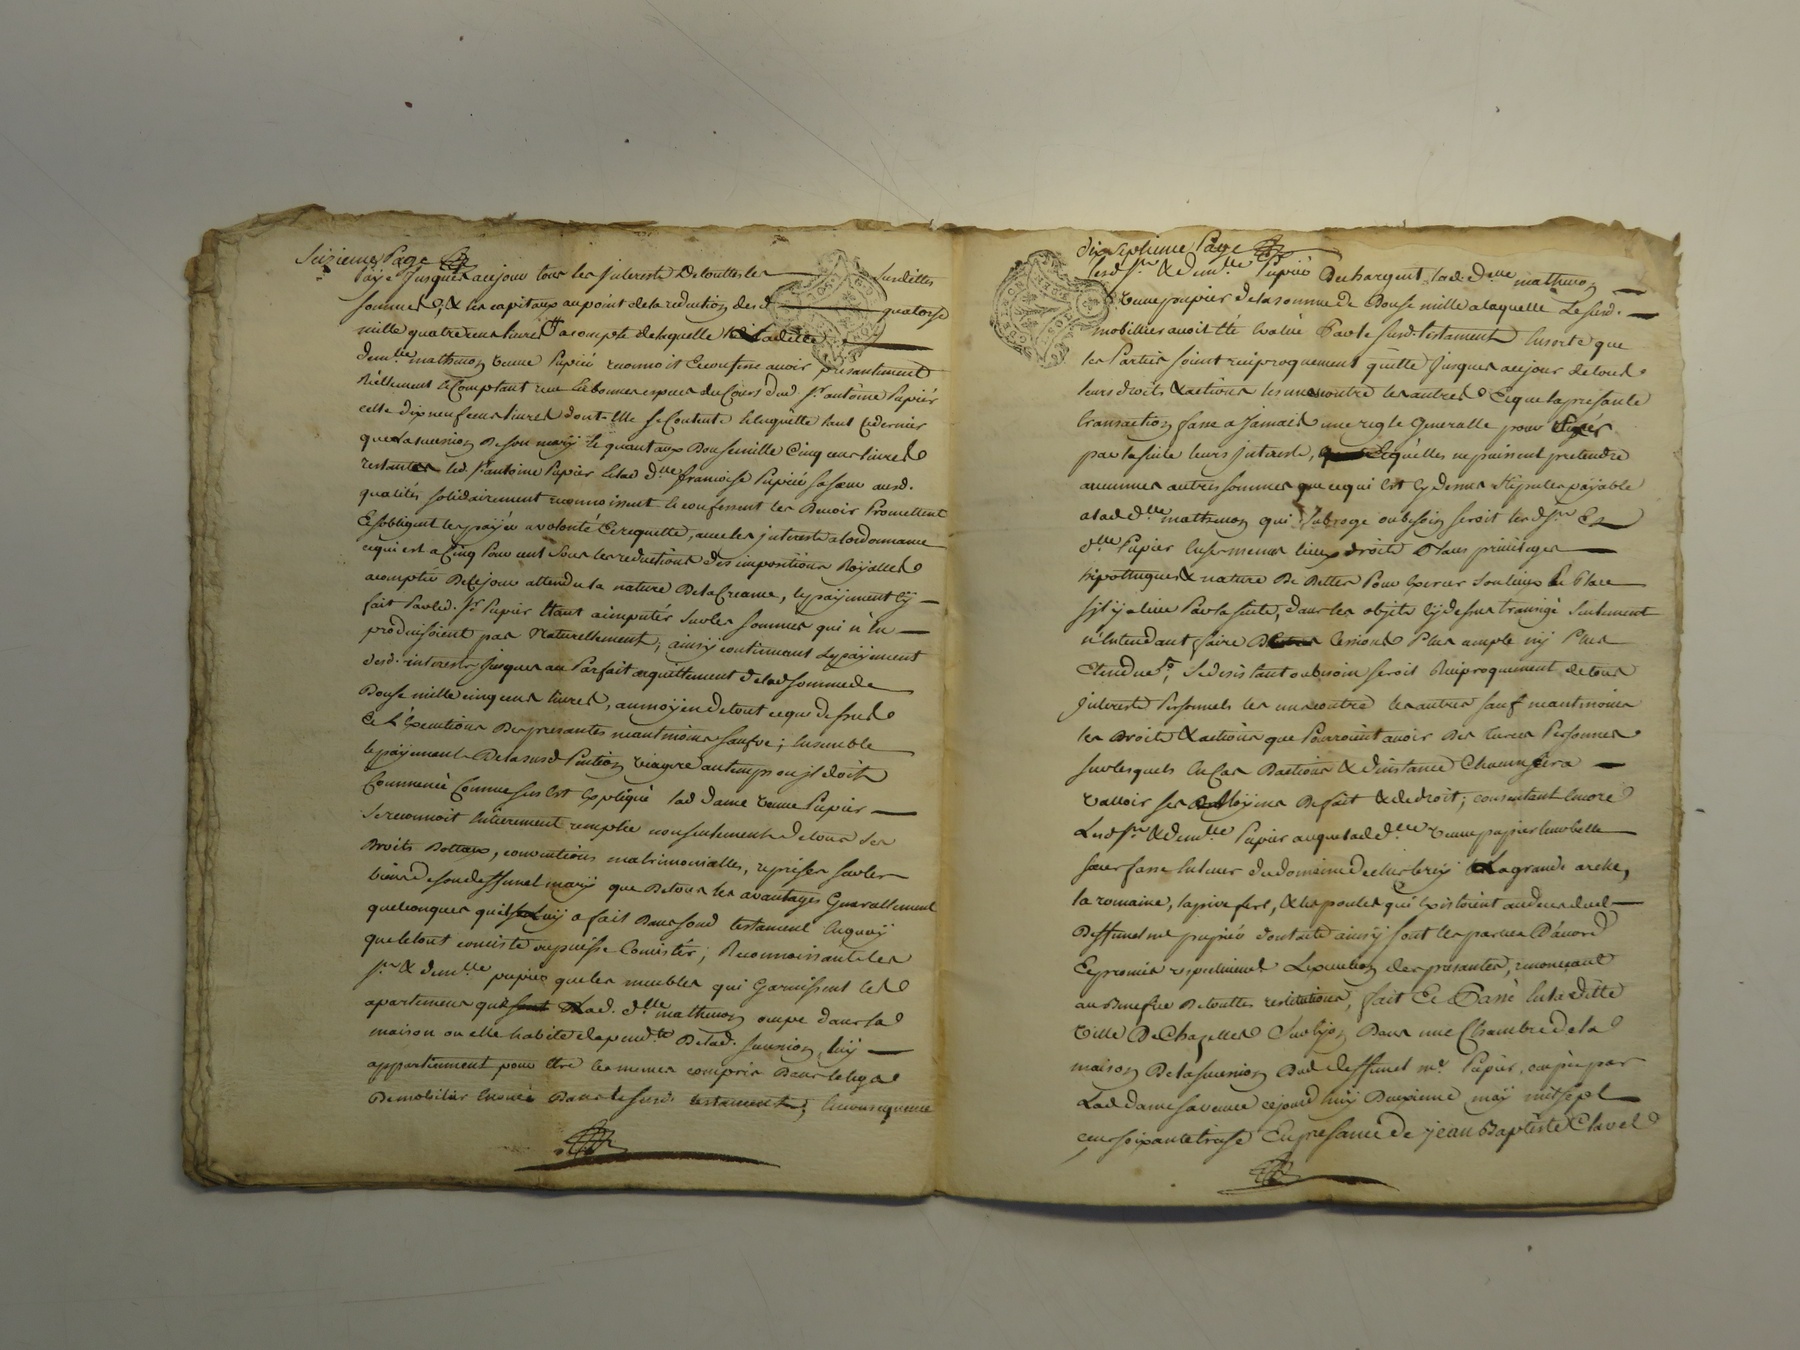 Seizieme Page
payé Jusques a ce jour tous les Interests de touttes les susdittes
sommes, & les capitaux au point de la reduction desd. quatorse
mille quatre cens livres a compte de laquelle Ladite
demlle mathevon veuve Papié reconnoit Et confesse avoir presantement
Réellement & Comptant reçu En bonnes especes du Cours dud. Sr. antoine Papier
celle dix neuf cens livres dont Elle se Contente & le quitte tant Ce dernier
que la sucession De son mary & quant aux Douse mille Cinq cens livres
restantes led. Sr antoine Papier Et lad. dlle françoise Papié sa sœur ausd.
qualités solidairement reconnoissent & confessent les Devoir Promettent
& s'obligent les payér a volonté & requette, avec les interests a lordonnance
ce qui est a Cinq Pour cent Sous les reductions des impositions Royalles
a compter De ce jour attendu la nature De la Creance, le payement Cy
fait Par led. Sr Papier Etant a imputér Sur les sommes qui n'En
produisoient pas Naturellement, ainsy continuant Le payement
desd. interests Jusques au Parfait acquittement de lad. somme de
Douse mille cinq cens livres, au moyen de tout ce que dessus
& l'Execution Des presantes neantmoins sauve; Ensemble
le payement De la susd. Pention viagere au temps ou jl doit
Commencé Comme sus Est Expliqué lad. Dame veuve Papier
Se reconnoit Entierement remplie non seulement de tous ses
Droits Dottaux, conventions matrimonialles, reprises sur les
biens de son deffunct mary que De tous les avantages Generallement
quelconques qu'il luy a fait Dans son testament En quoy
que le tout conciste ou puisse Concister; Reconnoissants les
Sr & demlle papier que les meubles qui Garnissent les
apartemens que Lad. dlle mathevon occupe dans la
maison ou elle habite dependte De lad. sucession, luy
appartiennent pour Etre les memes compris Dans le legs
De mobiliér Enoncé Dans le susd. testament; En consequence
dix septieme Page
lesd. Sr & demlle Papié Dechargent lad. dame mathevon
veuve papier de la somme de Douse mille a laquelle Le susd.
mobillier avoit Eté Evalué Par le susd. testament Ensorte que
les Parties soient reciproquement quitte Jusques a ce jour de tous
leurs droits & actions les uns contre les autres & que la presante
transaction fasse a Jamais une regle Generalle pour
par la suite leurs jnterests, & qu'elles ne puissent pretendre
aucunes autres sommes que ce qui Est Cy Dessus Stipulés payable
a lad. dlle mathevon qui Subroge ou besoin seroit lesd. Sr Et
dlle Papier En ses memes lieux droits & sans privileges
hipotteques & nature De Dettes Pour Exercer Son lieux & Place
s'jl y a lieu Par la suite, dans les objets Cy dessus transigé Seulement
n'Entendant faire De Cessions Plus ample ny Plus
Etendue, Se desistant ou besoin seroit Reciproquement de tous
jnterests Personnels les uns contre les autres sauf neantmoins
les Droits & actions que Pourroient avoir Des tierces Personnes
sur lesquels En Cas Dactions & d'instance Chacun sera
valloir ses Moyens De fait & de droit; consentant Encore
Lesd. Sr & demlle Papier a ce que lad. dlle veuve papier
fasse Enlever du domaine de La grande arche,
la romaine, & les poules qui Existoient au deces dud.
Deffunct me papier dont acte ainsy sont les parties D'acord
Et promis respectivemt Lexecution des presantes, renonçant
au Benefice De touttes restitutions, fait Et Passé En la ditte
ville De Chazelles Sur lyon Dans une Chambre de la
maison De la sucession Dud. deffunct me Papier, occupée par
Lad. dame sa veuve ce jourd'huy Deuxieme may mil sept
cens soixante treise En presance de jean Baptiste Clavel